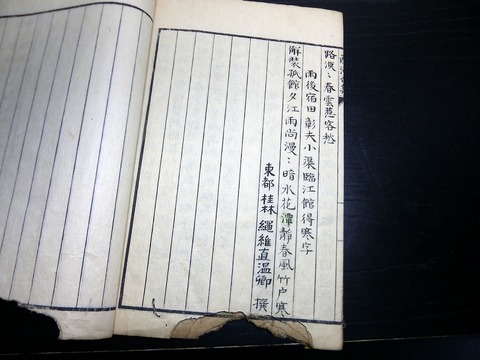 路漠〻春雲惹客愁
雨後宿田彰夫小渠臨江館得寒字
解裝孤館夕江雨尚漫〻暗水花潭靜春風竹戶寒
東都桂林繩維直溫卿撰